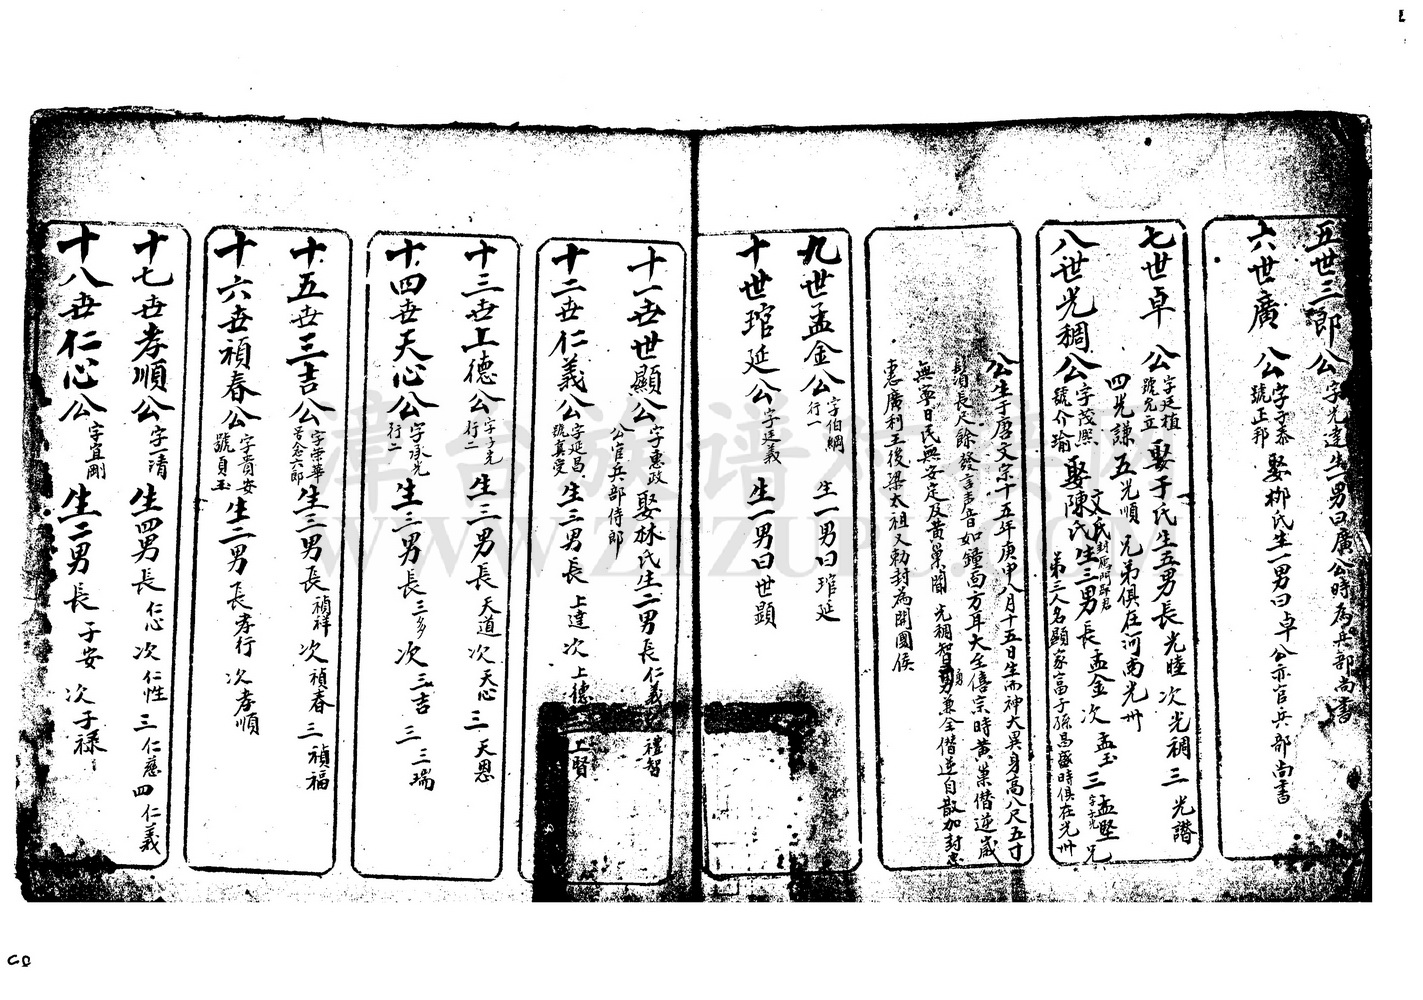 五世三郎公字光達生男曰廣公時為兵部尚書
六世廣公字子泰號正邦娶柳氏生一男曰卓公亦官兵部尚書
七世卓公字廷植號允立娶于氏生五男長光睦次光稠三光譜
四光謙五光順兄弟俱在河南光州
八世光稠公字茂熙號介瑜娶陳氏生三男長孟金次孟玉三孟堅兄
第三人名顯家富子孫昌盛時俱在光州
公生于唐文宗十五年庚申八月十五日生而神大異身高八尺五寸
鬚長尺餘發言声音如鐘面方耳大至僖宗時黄巢僭逆歲
無寧日民無安定及黄巢闖光稠智勇兼全僭逆自散加封忠
惠廣利王後梁太祖又勅封為開國侯
九世孟金公行一字伯綱生一男曰琯延
十世琯延公字廷義生一男曰世顕
十一世世顯公字惠政娶林氏生二男長仁義次禮智
公官兵部侍郎
十二世仁義公字延昌號真受生三男長上達次上德三上賢
十三世上德公字子元行二生三男長天道次天心三天恩
十四世天心公字承先行二生三男長三多次三吉三三瑞
十五世三吉公字榮華生三男長禎祥次禎春三禎福
十六世禎春公字貴安號貞玉生二男長孝行次孝順
十七世孝順公字一清生四男長仁心次仁性三仁慈四仁義
十八世仁心公字宜剛生二男長子安次子祿
漳台族谱对接网
WWW.ZTZUPU.COM